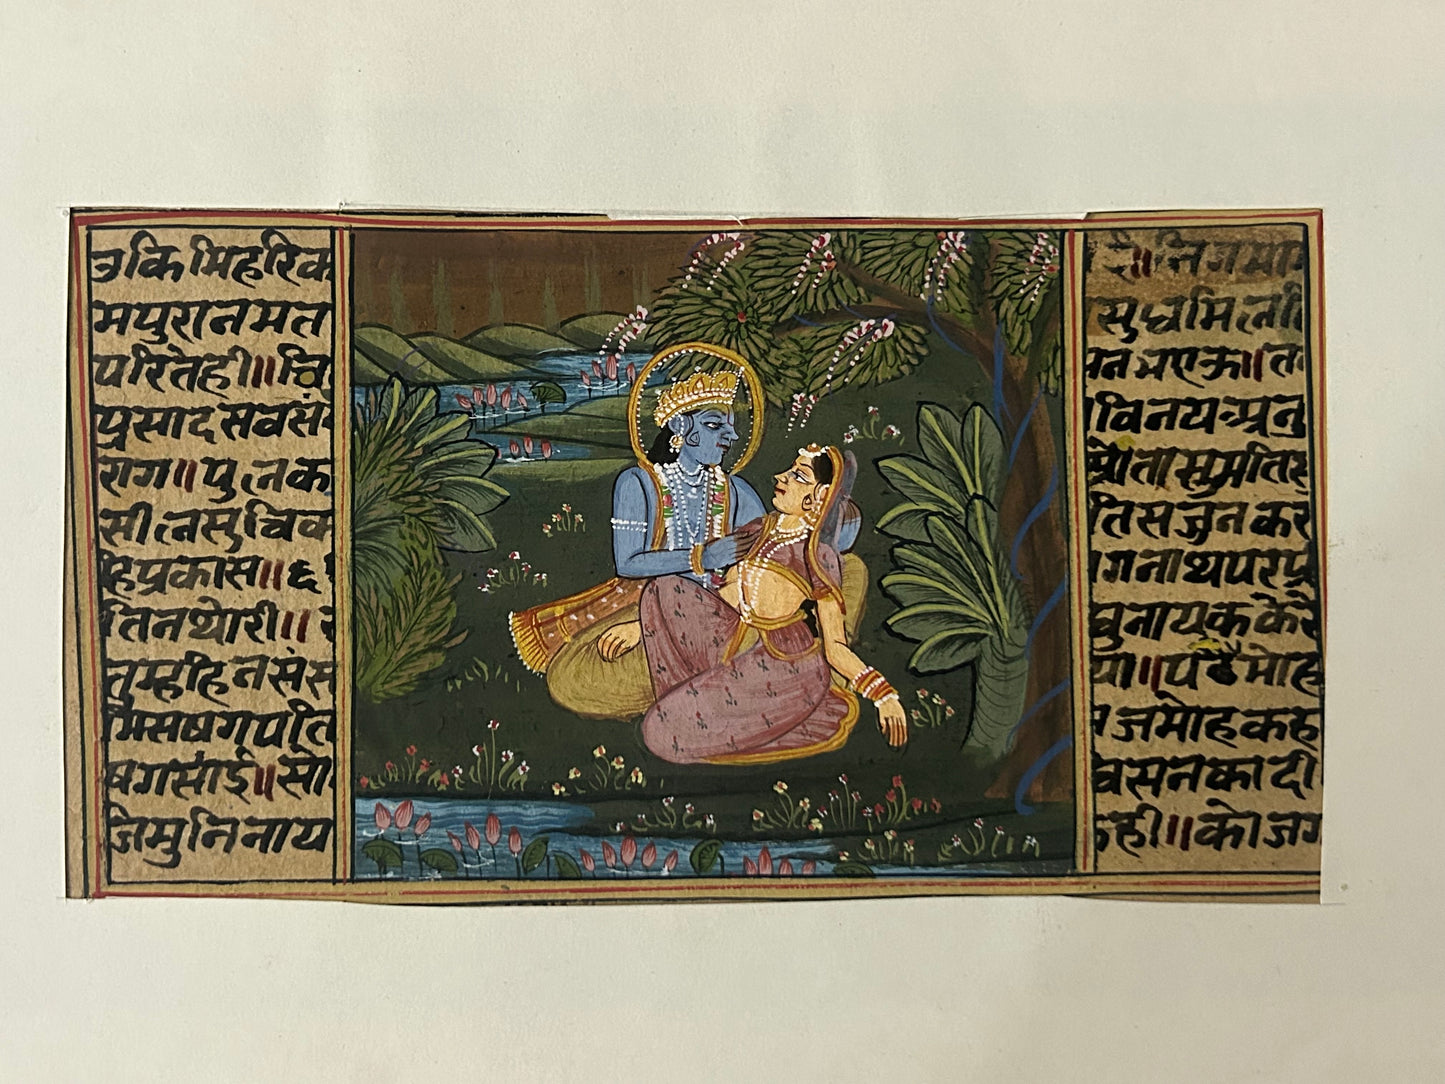 किमिहरिक
मपुरानमत
परितेही॥वि
प्रसादसवसं
राग॥पुत्नक
सीत्नसुविक
हिप्रकास॥६
तिनथोरी॥
तुम्हहिनसंस
मिसषगपति
षगसांई॥सो
जिमुनिनाय
॥निजमा
सुधमित्नति
नभएऊ॥त
विनयअनु
श्रोतासुमतिस
तिसजुनकर
गनाथपरप्र
घुनायककेरे
या॥पठैमोह
जमोहकह
वसनकादी
कही॥कोजग